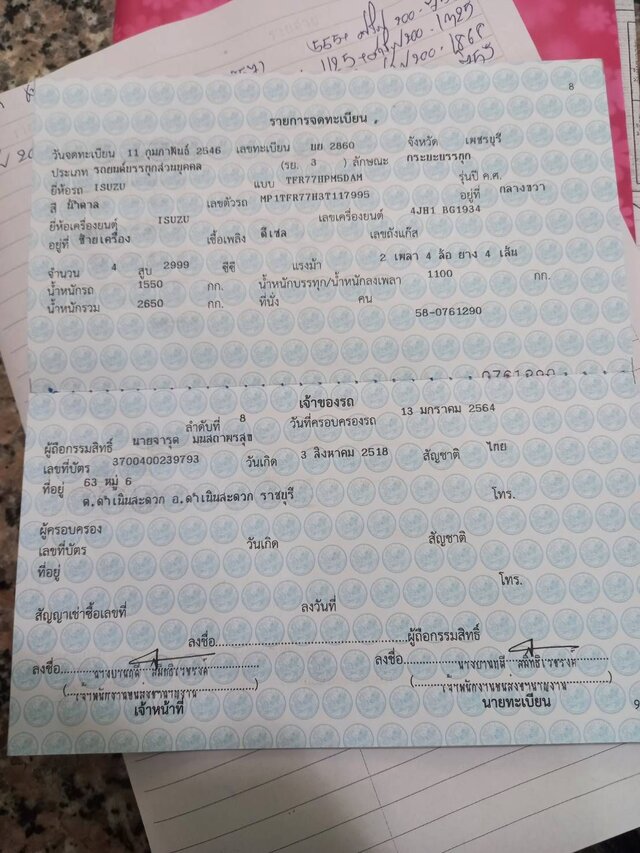 555+
8
รายการจดทะเบียน
วันจดทะเบียน 11 กุมภาพันธ์ 2546 เลขทะเบียน มย 2860 จังหวัด เพชรบุรี
ประเภท รถยนต์บรรทุกส่วนบุคคล (รย. 3 ) ลักษณะ กระบะบรรทุก
ยี่ห้อรถ ISUZU แบบ TFR77HPM5DAM รุ่นปี ค.ศ.
สี น้ำตาล เลขตัวรถ MP1TFR77H3T117995 อยู่ที่ กลางขวา
ยี่ห้อเครื่องยนต์ ISUZU เลขเครื่องยนต์ 4JH1 BG1934
อยู่ที่ ซ้ายเครื่อง เชื้อเพลิง ดีเซล เลขถังแก๊ส
จำนวน 4 สูบ 2999 ซีซี แรงม้า 2 เพลา 4 ล้อ ยาง 4 เส้น
น้ำหนักรถ 1550 กก. น้ำหนักบรรทุก/น้ำหนักลงเพลา 1100 กก.
น้ำหนักรวม 2650 กก. ที่นั่ง คน
58-0761290
เจ้าของรถ
ลำดับที่ 8 วันที่ครอบครองรถ 13 มกราคม 2564
ผู้ถือกรรมสิทธิ์ นายจารุต
เลขที่บัตร 3700400239793 วันเกิด 3 สิงหาคม 2518 สัญชาติ ไทย
ที่อยู่ 63 หมู่ 6
ต.ดำเนินสะดวก อ.ดำเนินสะดวก ราชบุรี โทร.
ผู้ครอบครอง
เลขที่บัตร วันเกิด สัญชาติ
ที่อยู่ โทร.
สัญญาเช่าซื้อเลขที่ ลงวันที่
ลงชื่อ ผู้ถือกรรมสิทธิ์
ลงชื่อ ลงชื่อ
เจ้าพนักงานขนส่งชำนาญงาน เจ้าพนักงานขนส่งชำนาญงาน
เจ้าหน้าที่ นายทะเบียน
9